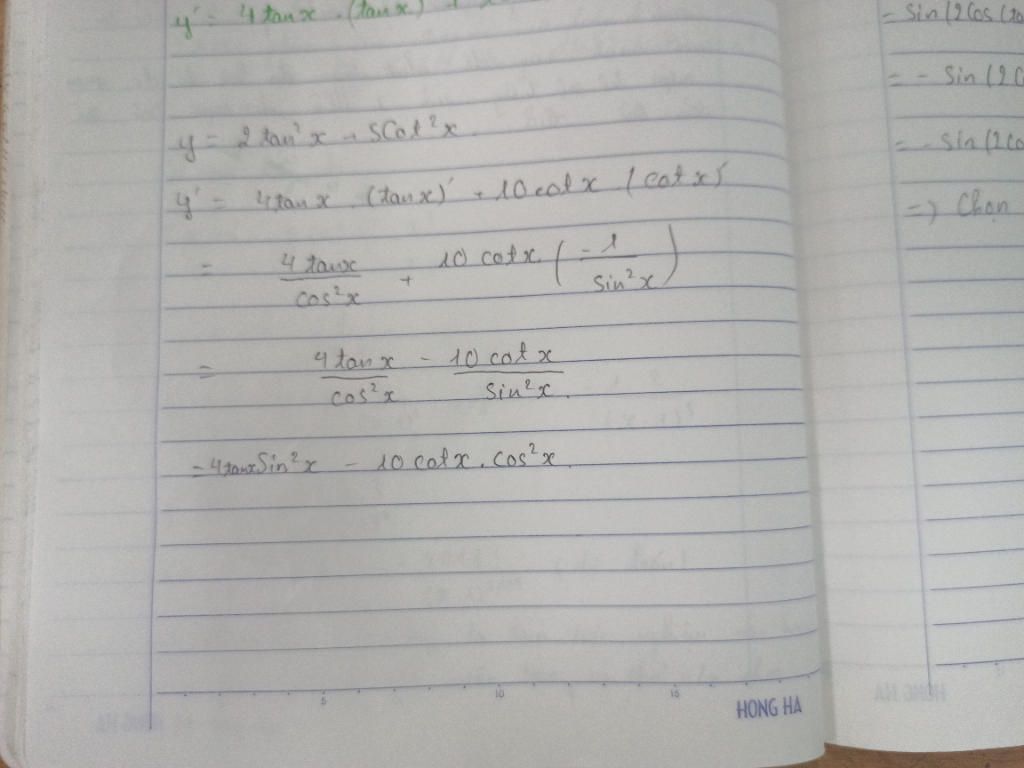 y' = 4 tanx . (tanx)' +
y = 2 tan²x - 5Cot²x.
y' = 4tanx . (tanx)' + 10 cotx (cotx)'
= 4 tanx / cos²x + 10 cotx . (-1 / sin²x)
= 4 tanx / cos²x - 10 cotx / sin²x.
= 4tanx Sin²x - 10 cotx . cos²x.
5 10 15
HONG HA
= Sin(2Cos(ta
= - Sin(2C
= - Sin(2Co
=> Chọn
HONG HA